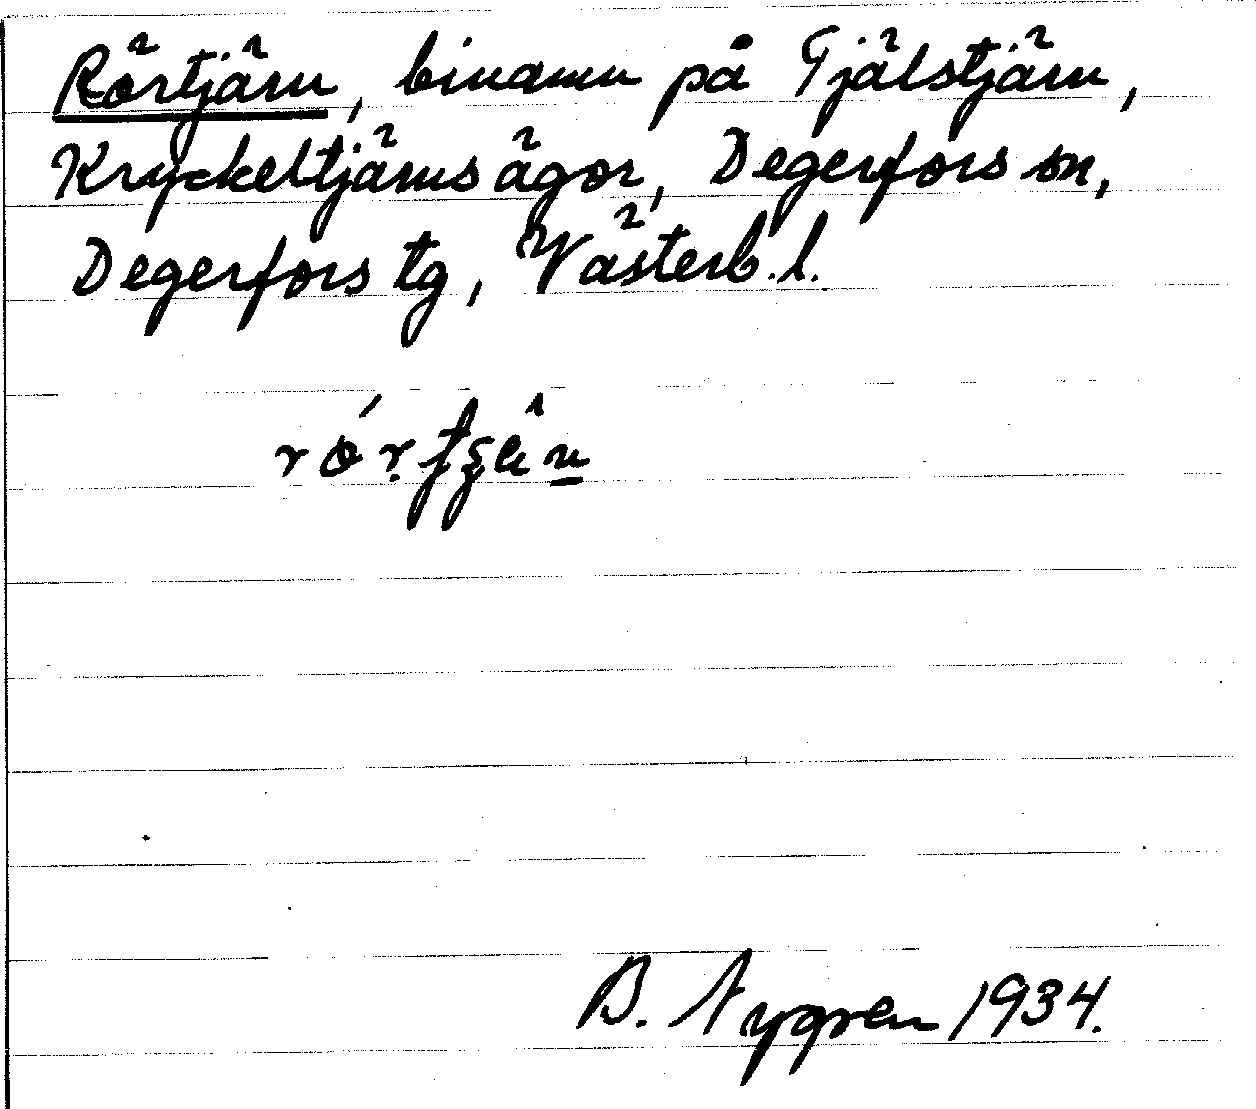 Rörtjärn, binamn på Tjälstjärn,
Kryckeltjärns ägor, Degerfors sn,
Degerfors tg, Västerb. l.
B. Nygren 1934.